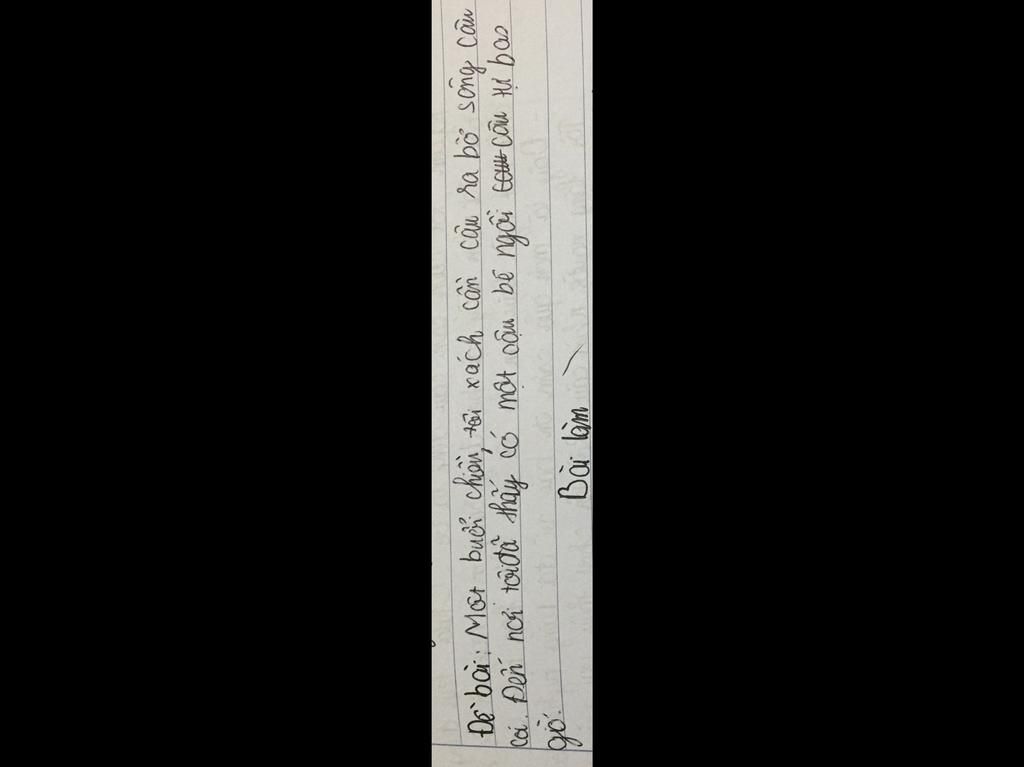 Đề bài: Một buổi chiều, tôi xách cần câu ra bờ sông câu
cá. Đến nơi tôi đã thấy có một cậu bé ngồi câu tự bao
giờ.
Bài làm